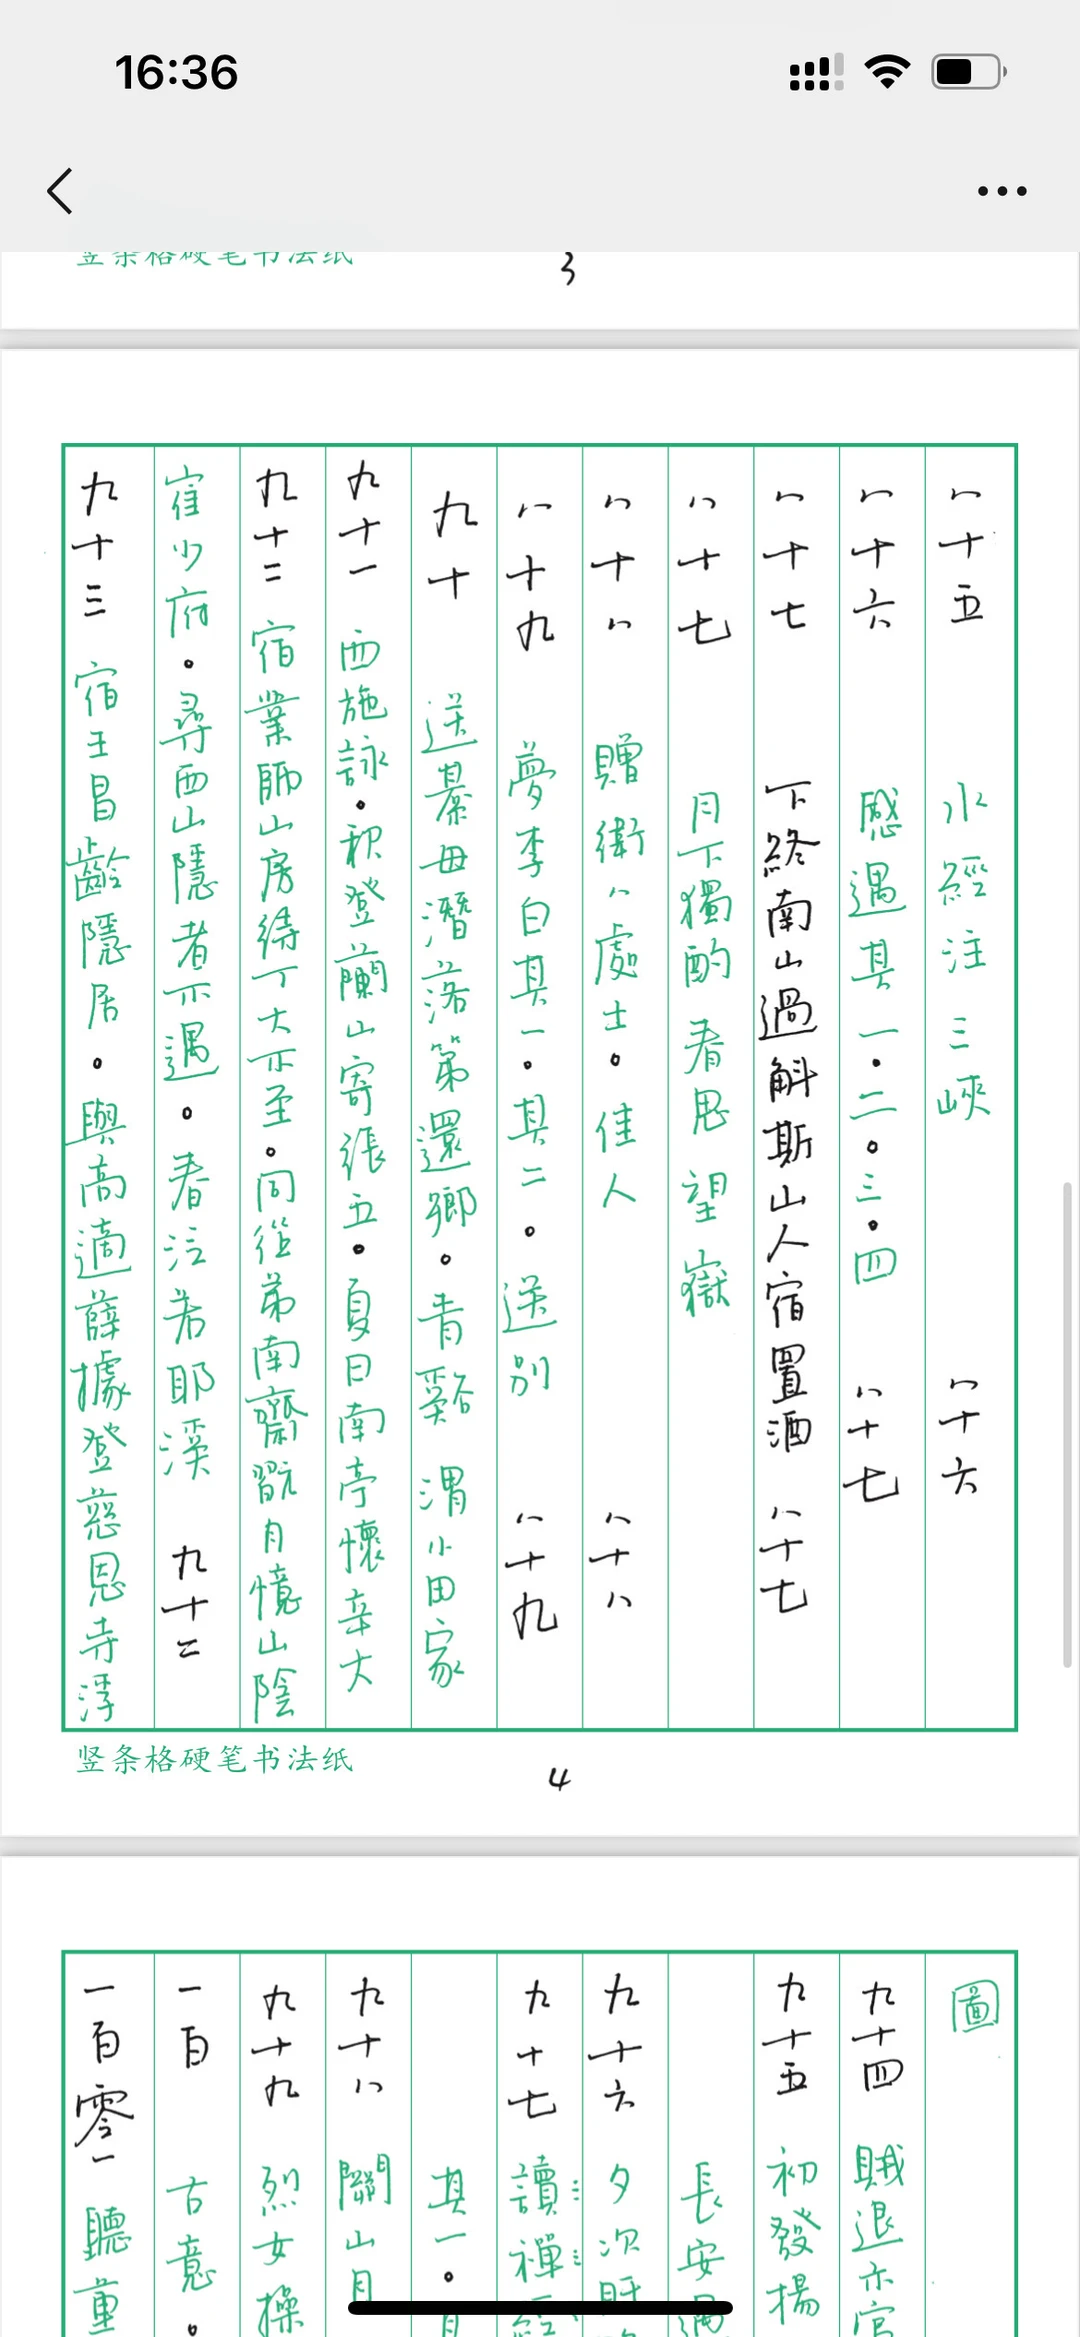 16:36
竖条格硬笔书法纸
3
八十五 水經注三峽 八十六
八十六 感遇其一・二。三・四 八十七
八十七 下終南山過斛斯山人宿置酒 八十七
八十七 月下獨酌 春思 望嶽
八十八 贈衛八處士。佳人 八十八
八十九 夢李白其一・其二。送別 八十九
九十 送綦毋潛落第還鄉。青谿 渭川田家
九十一 西施詠・秋登蘭山寄張五・夏日南亭懷辛大
九十二 宿業師山房待丁大不至。同從弟南齋翫月憶山陰
崔少府。尋西山隱者不遇。春泛若耶溪 九十二
九十三 宿王昌齡隱居。與高適薛據登慈恩寺浮
竖条格硬笔书法纸
4
圖
九十四 賊退示官
九十五 初發揚
長安遇
九十六 夕次盱
九十七 讀禪經
其一。其
九十八 關山月
九十九 烈女操
一百 古意。
一百零一 聽董